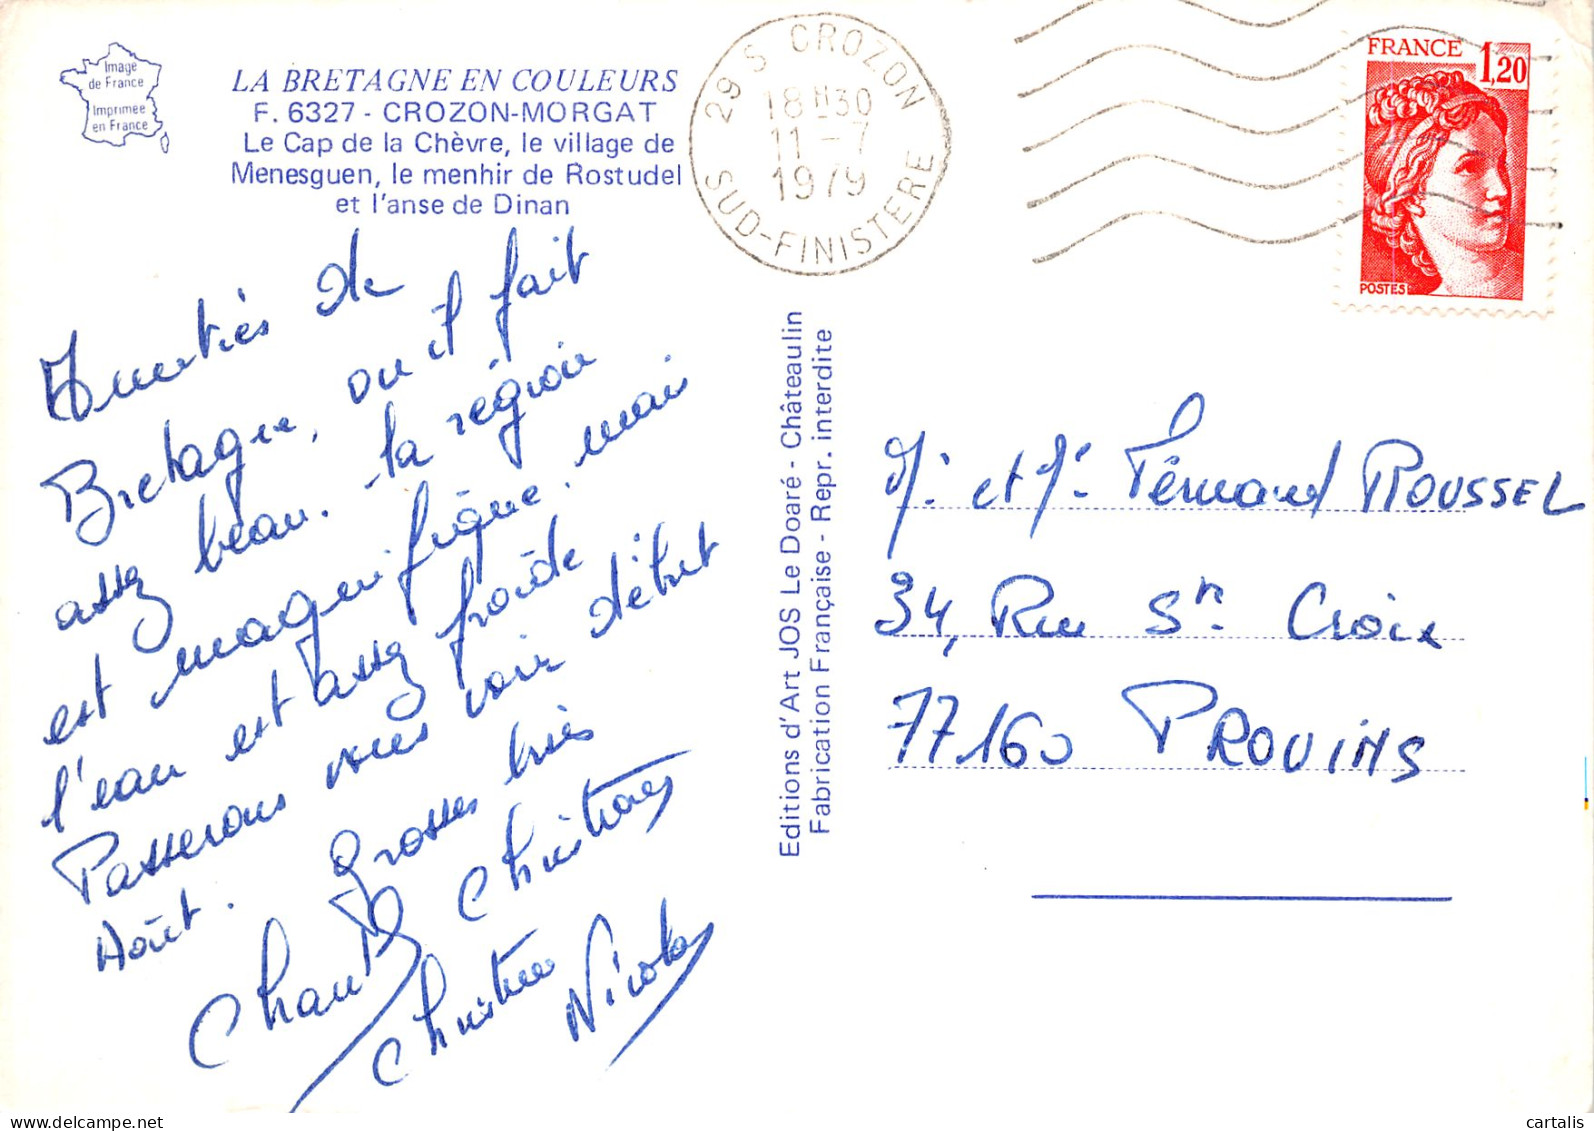 Image
de France
Imprimée
en France
LA BRETAGNE EN COULEURS
F. 6327 - CROZON-MORGAT
Le Cap de la Chèvre, le village de
Menesguen, le menhir de Rostudel
et l'anse de Dinan
29 S CROZON
18H30
11-7
1979
SUD-FINISTERE
FRANCE 1,20
POSTES
Amitiés de
Bretagne, ou il fait
assez beau. la région
est magnifique, mais
l'eau est assez froide.
Passerons vous voir début
Août. Grosses bises
Chantal Christine
Nicolas
Editions d'Art JOS Le Doaré - Châteaulin
Fabrication Française - Repr. interdite
Mr et Me Fernand ROUSSEL
34, Rue Ste Croix
77160 PROVINS
cartalis
www.delcampe.net